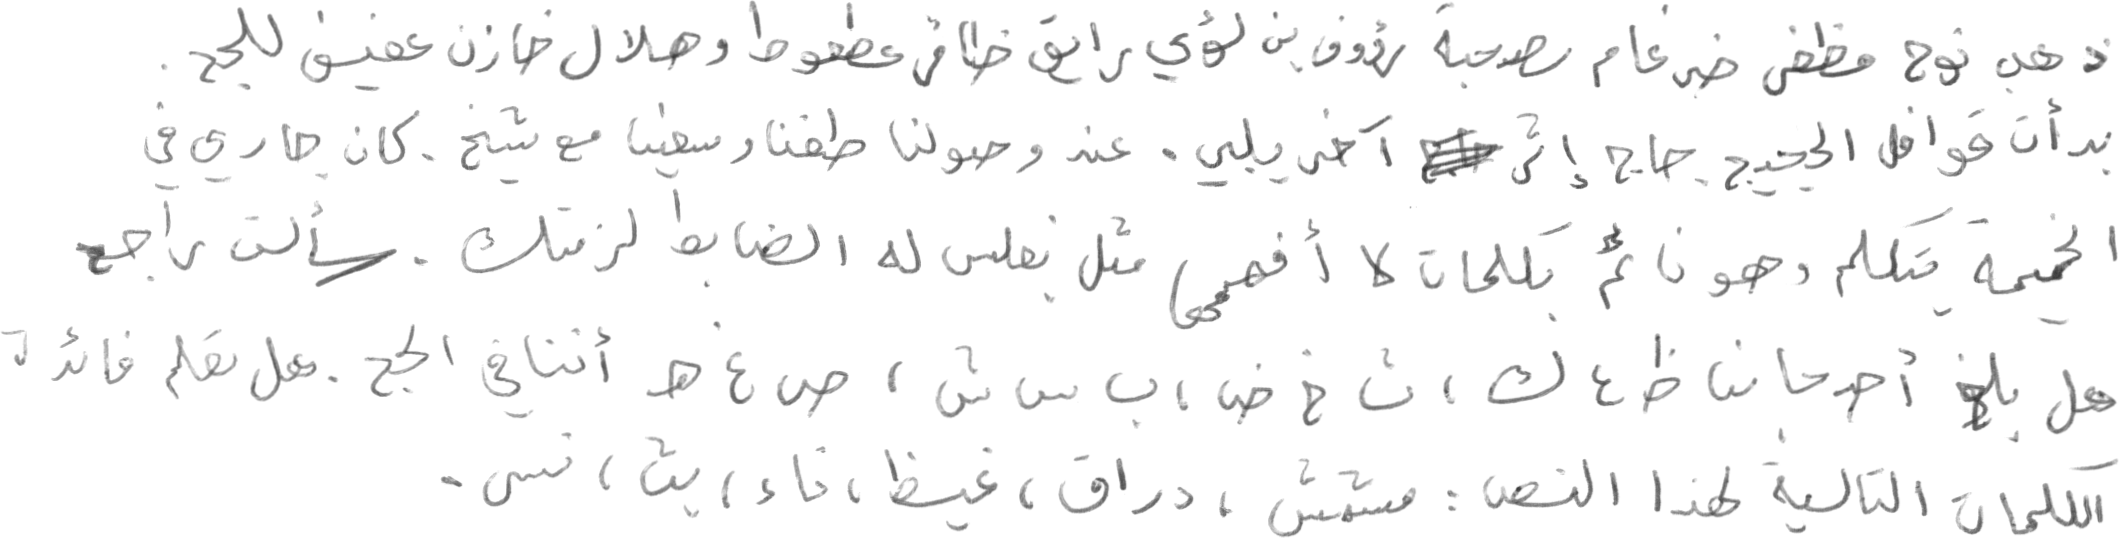 ذهب نوح مظفر ضرغام بصحبة رؤوف بن لؤي رايق ظافر عطعوط وهلال خازن عفيش للحج .
بدأت قوافل الحجيج حاج إثر آخر يلبي . عند وصولنا طفنا وسعينا مع شيخ . كان جاري في
الخيمة يتكلم وهو نائمٌ بكلمات لا أفهمها مثل نعلس له الضابط لزمتك . سألت راجح
هل بلغ أحد حاشا ظ ع ك ، ث خ ض ، ب س ش ، ص غ هـ أننا في الحج . هل تعلم فائدة
الكلمات التالية لهذا النص : مشمش ، دراق ، غيظ ، فاء ، يث ، نسي .